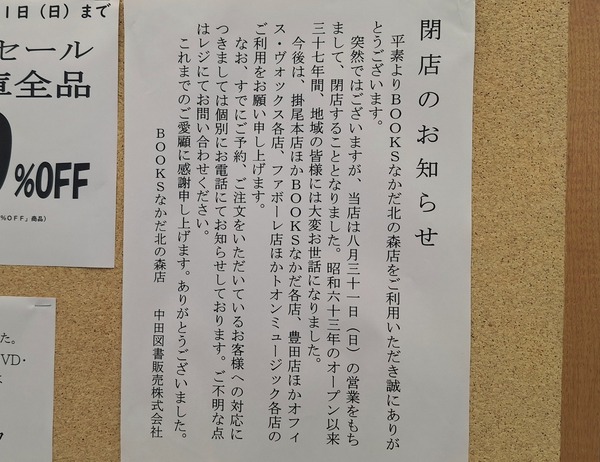 閉店のお知らせ
平素よりBOOKSなかだ北の森店をご利用いただき誠にありが
とうございます。
突然ではございますが、当店は八月三十一日（日）の営業をもち
まして、閉店することとなりました。昭和六十三年のオープン以来
三十七年間、地域の皆様には大変お世話になりました。
今後は、掛尾本店ほかBOOKSなかだ各店、豊田店ほかオフィ
ス・ヴォックス各店、ファボーレ店ほかトオンミュージック各店の
ご利用をお願い申し上げます。
なお、すでにご予約、ご注文をいただいているお客様への対応に
つきましては個別にお電話にてお知らせしております。ご不明な点
はレジにてお問い合わせください。
これまでのご愛顧に感謝申し上げます。ありがとうございました。
BOOKSなかだ北の森店　中田図書販売株式会社
1日（日）まで
セール
庫全品
%OFF
%OFF」商品）
た。
VD・